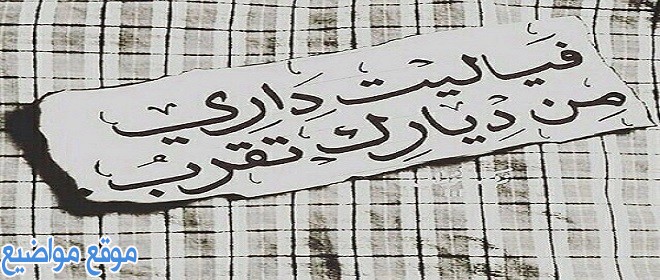 فَيَاليت دَارِي
مِن دِيَارِك تقربُ
موقع مواضيع